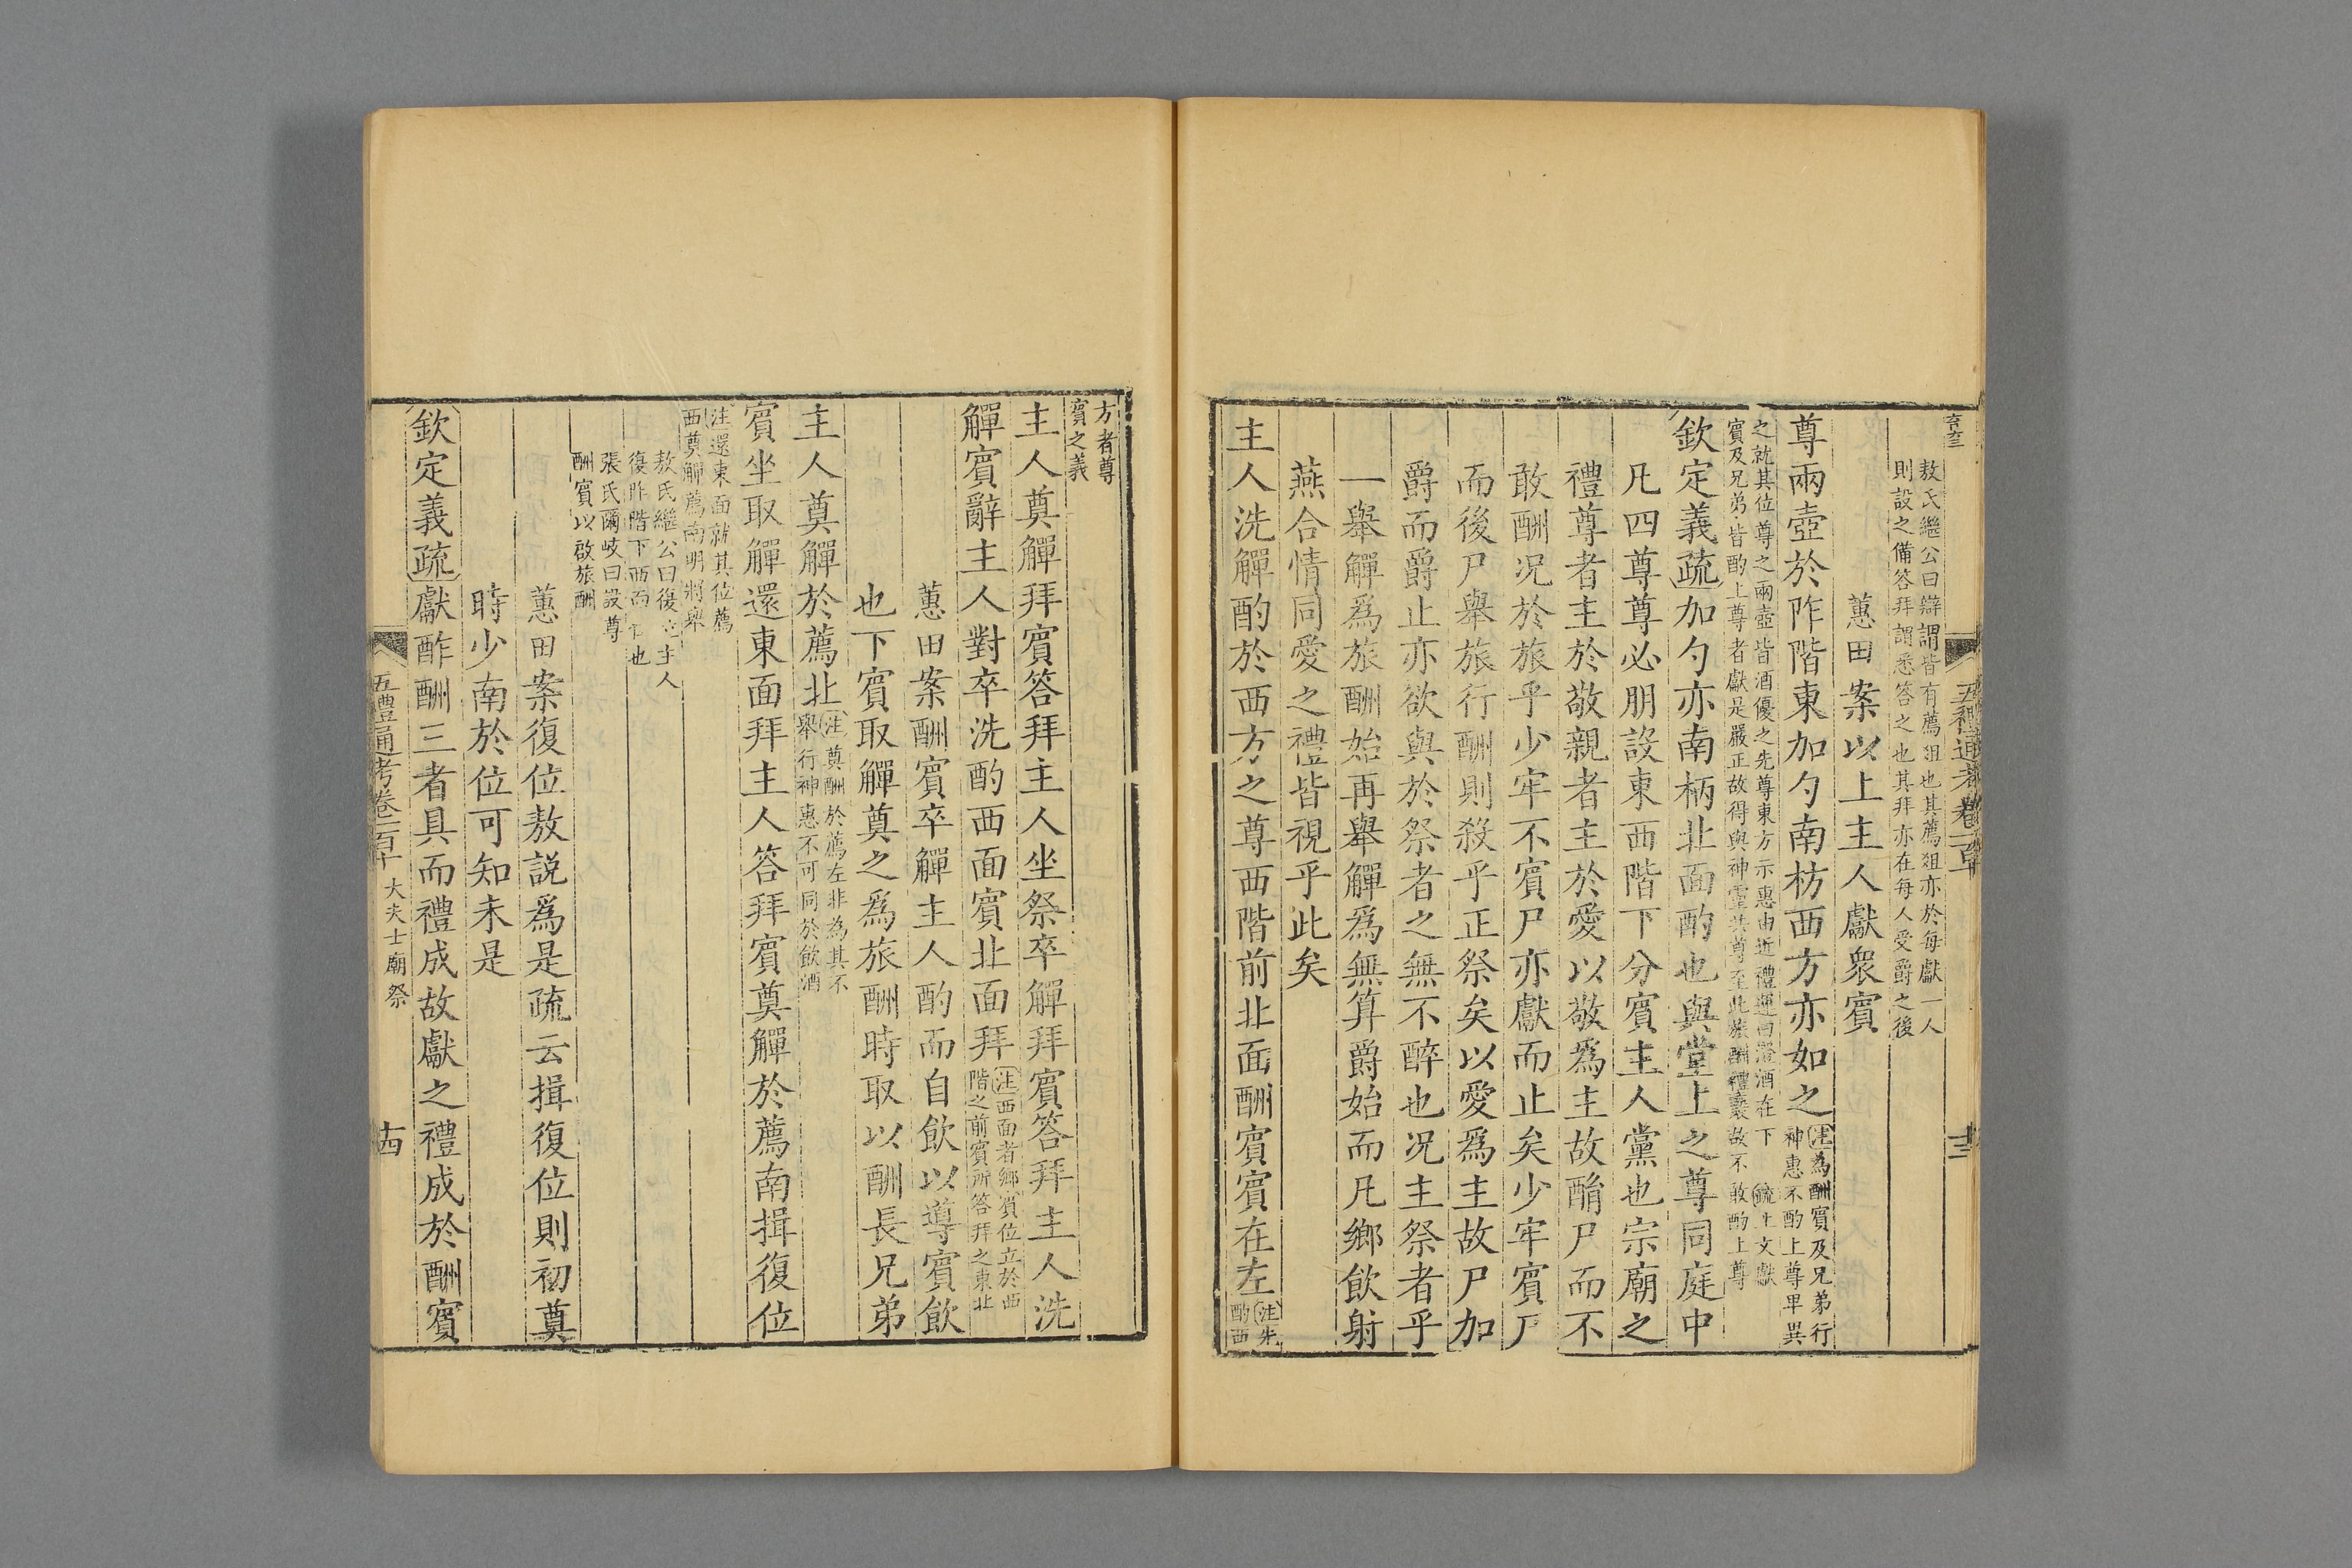 五禮通考卷一百十
敖氏繼公曰辯謂皆有薦俎也其薦俎亦於每獻一人
則設之備答拜謂悉答之也其拜亦在每人受爵之後
蕙田案以上主人獻衆賓
尊兩壺於阼階東加勺南枋西方亦如之注為酬賓及兄弟行
神惠不酌上尊卑異
之就其位尊之兩壺皆酒優之先尊東方示惠由近禮運曰澄酒在下疏上文獻
賓及兄弟皆酌上尊者獻是嚴正故得與神靈共尊至此旅酬禮褻故不敢酌上尊
欽定義疏加勺亦南柄北面酌也與堂上之尊同庭中
凡四尊尊必朋設東西階下分賓主人黨也宗廟之
禮尊者主於敬親者主於愛以敬爲主故酳尸而不
敢酬况於旅乎少牢不賓尸亦獻而止矣少牢賓尸
而後尸舉旅行酬則殺乎正祭矣以愛爲主故尸加
爵而爵止亦欲與於祭者之無不醉也况主祭者乎
一舉觶爲旅酬始再舉觶爲無算爵始而凡鄉飲射
燕合情同愛之禮皆視乎此矣
主人洗觶酌於西方之尊西階前北面酬賓賓在左注先
酌西
方者尊
賓之義
主人奠觶拜賓答拜主人坐祭卒觶拜賓答拜主人洗
觶賓辭主人對卒洗酌西面賓北面拜注西面者鄉賓位立於西
階之前賓所答拜之東北
蕙田案酬賓卒觶主人酌而自飲以導賓飲
也下賓取觶奠之爲旅酬時取以酬長兄弟
主人奠觶於薦北注奠酬於薦左非為其不
舉行神惠不可同於飲酒
賓坐取觶還東面拜主人答拜賓奠觶於薦南揖復位
注還東面就其位薦
西奠觶薦南明將舉
敖氏繼公曰復位主人
復阼階下西面位也
張氏爾岐曰設尊
酬賓以啟旅酬
蕙田案復位敖説爲是疏云揖復位則初奠
時少南於位可知未是
欽定義疏獻酢酬三者具而禮成故獻之禮成於酬賓
五禮通考卷一百十 大夫士廟祭 十四